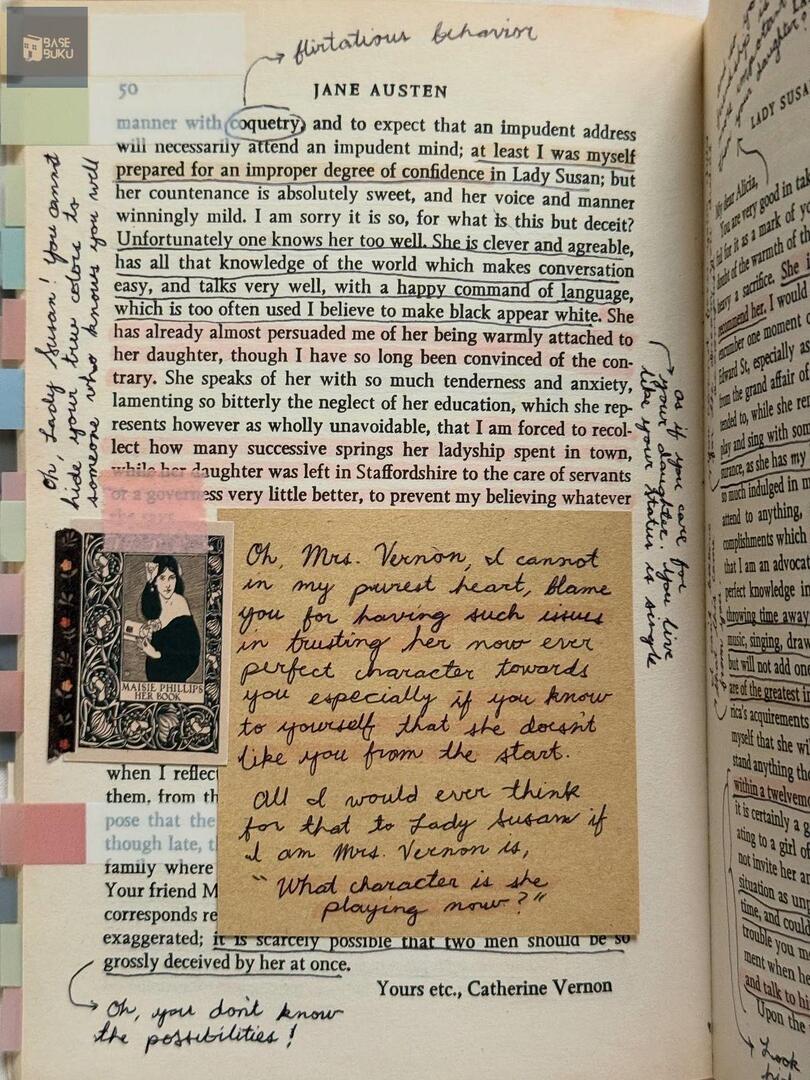 BASE
BUKU
flirtatious behavior
50
JANE AUSTEN
manner with coquetry, and to expect that an impudent address
will necessarily attend an impudent mind; at least I was myself
prepared for an improper degree of confidence in Lady Susan; but
her countenance is absolutely sweet, and her voice and manner
winningly mild. I am sorry it is so, for what is this but deceit?
Unfortunately one knows her too well. She is clever and agreeable,
has all that knowledge of the world which makes conversation
easy, and talks very well, with a happy command of language,
which is too often used I believe to make black appear white. She
has already almost persuaded me of her being warmly attached to
her daughter, though I have so long been convinced of the con-
trary. She speaks of her with so much tenderness and anxiety,
lamenting so bitterly the neglect of her education, which she rep-
resents however as wholly unavoidable, that I am forced to recol-
lect how many successive springs her ladyship spent in town,
while her daughter was left in Staffordshire to the care of servants
or a governess very little better, to prevent my believing whatever
she says.
Oh, Lady Susan! You cannot
hide your true colors to
someone who knows you well
as if you care for
your daughter. You live
like your status is single
MAISIE PHILLIPS
HER BOOK
Oh, Mrs. Vernon, I cannot
in my purest heart, blame
you for having such issues
in trusting her now ever
perfect character towards
you especially if you know
to yourself that she doesn't
like you from the start.
All I would ever think
for that to Lady Susan if
I am Mrs. Vernon is,
"What character is she
playing now?"
when I reflec
them, from th
pose that the
though late, t
family where
Your friend M
corresponds re
exaggerated; it is scarcely possible that two men should be so
grossly deceived by her at once.
Yours etc., Catherine Vernon
Oh, you don't know
the possibilities!
LADY SUSA
My dear Alicia,
You are very good in tak
ful for it as a mark of yo
doubt of the warmth of th
heavy a sacrifice. She i
recommend her. I would
encumber one moment o
Edward St, especially as
from the grand affair of
tended to, while she rem
play and sing with som
surance, as she has my
so much indulged in m
attend to anything,
complishments which
that I am an advocat
perfect knowledge in
throwing time away
music, singing, draw
but will not add one
are of the greatest in
rica's acquirements
myself that she wi
stand anything tho
within a twelvem
it is certainly a g
ating to a girl of
not invite her an
situation as unp
time, and could
trouble you m
ment when he
and talk to hi
Upon the
Look